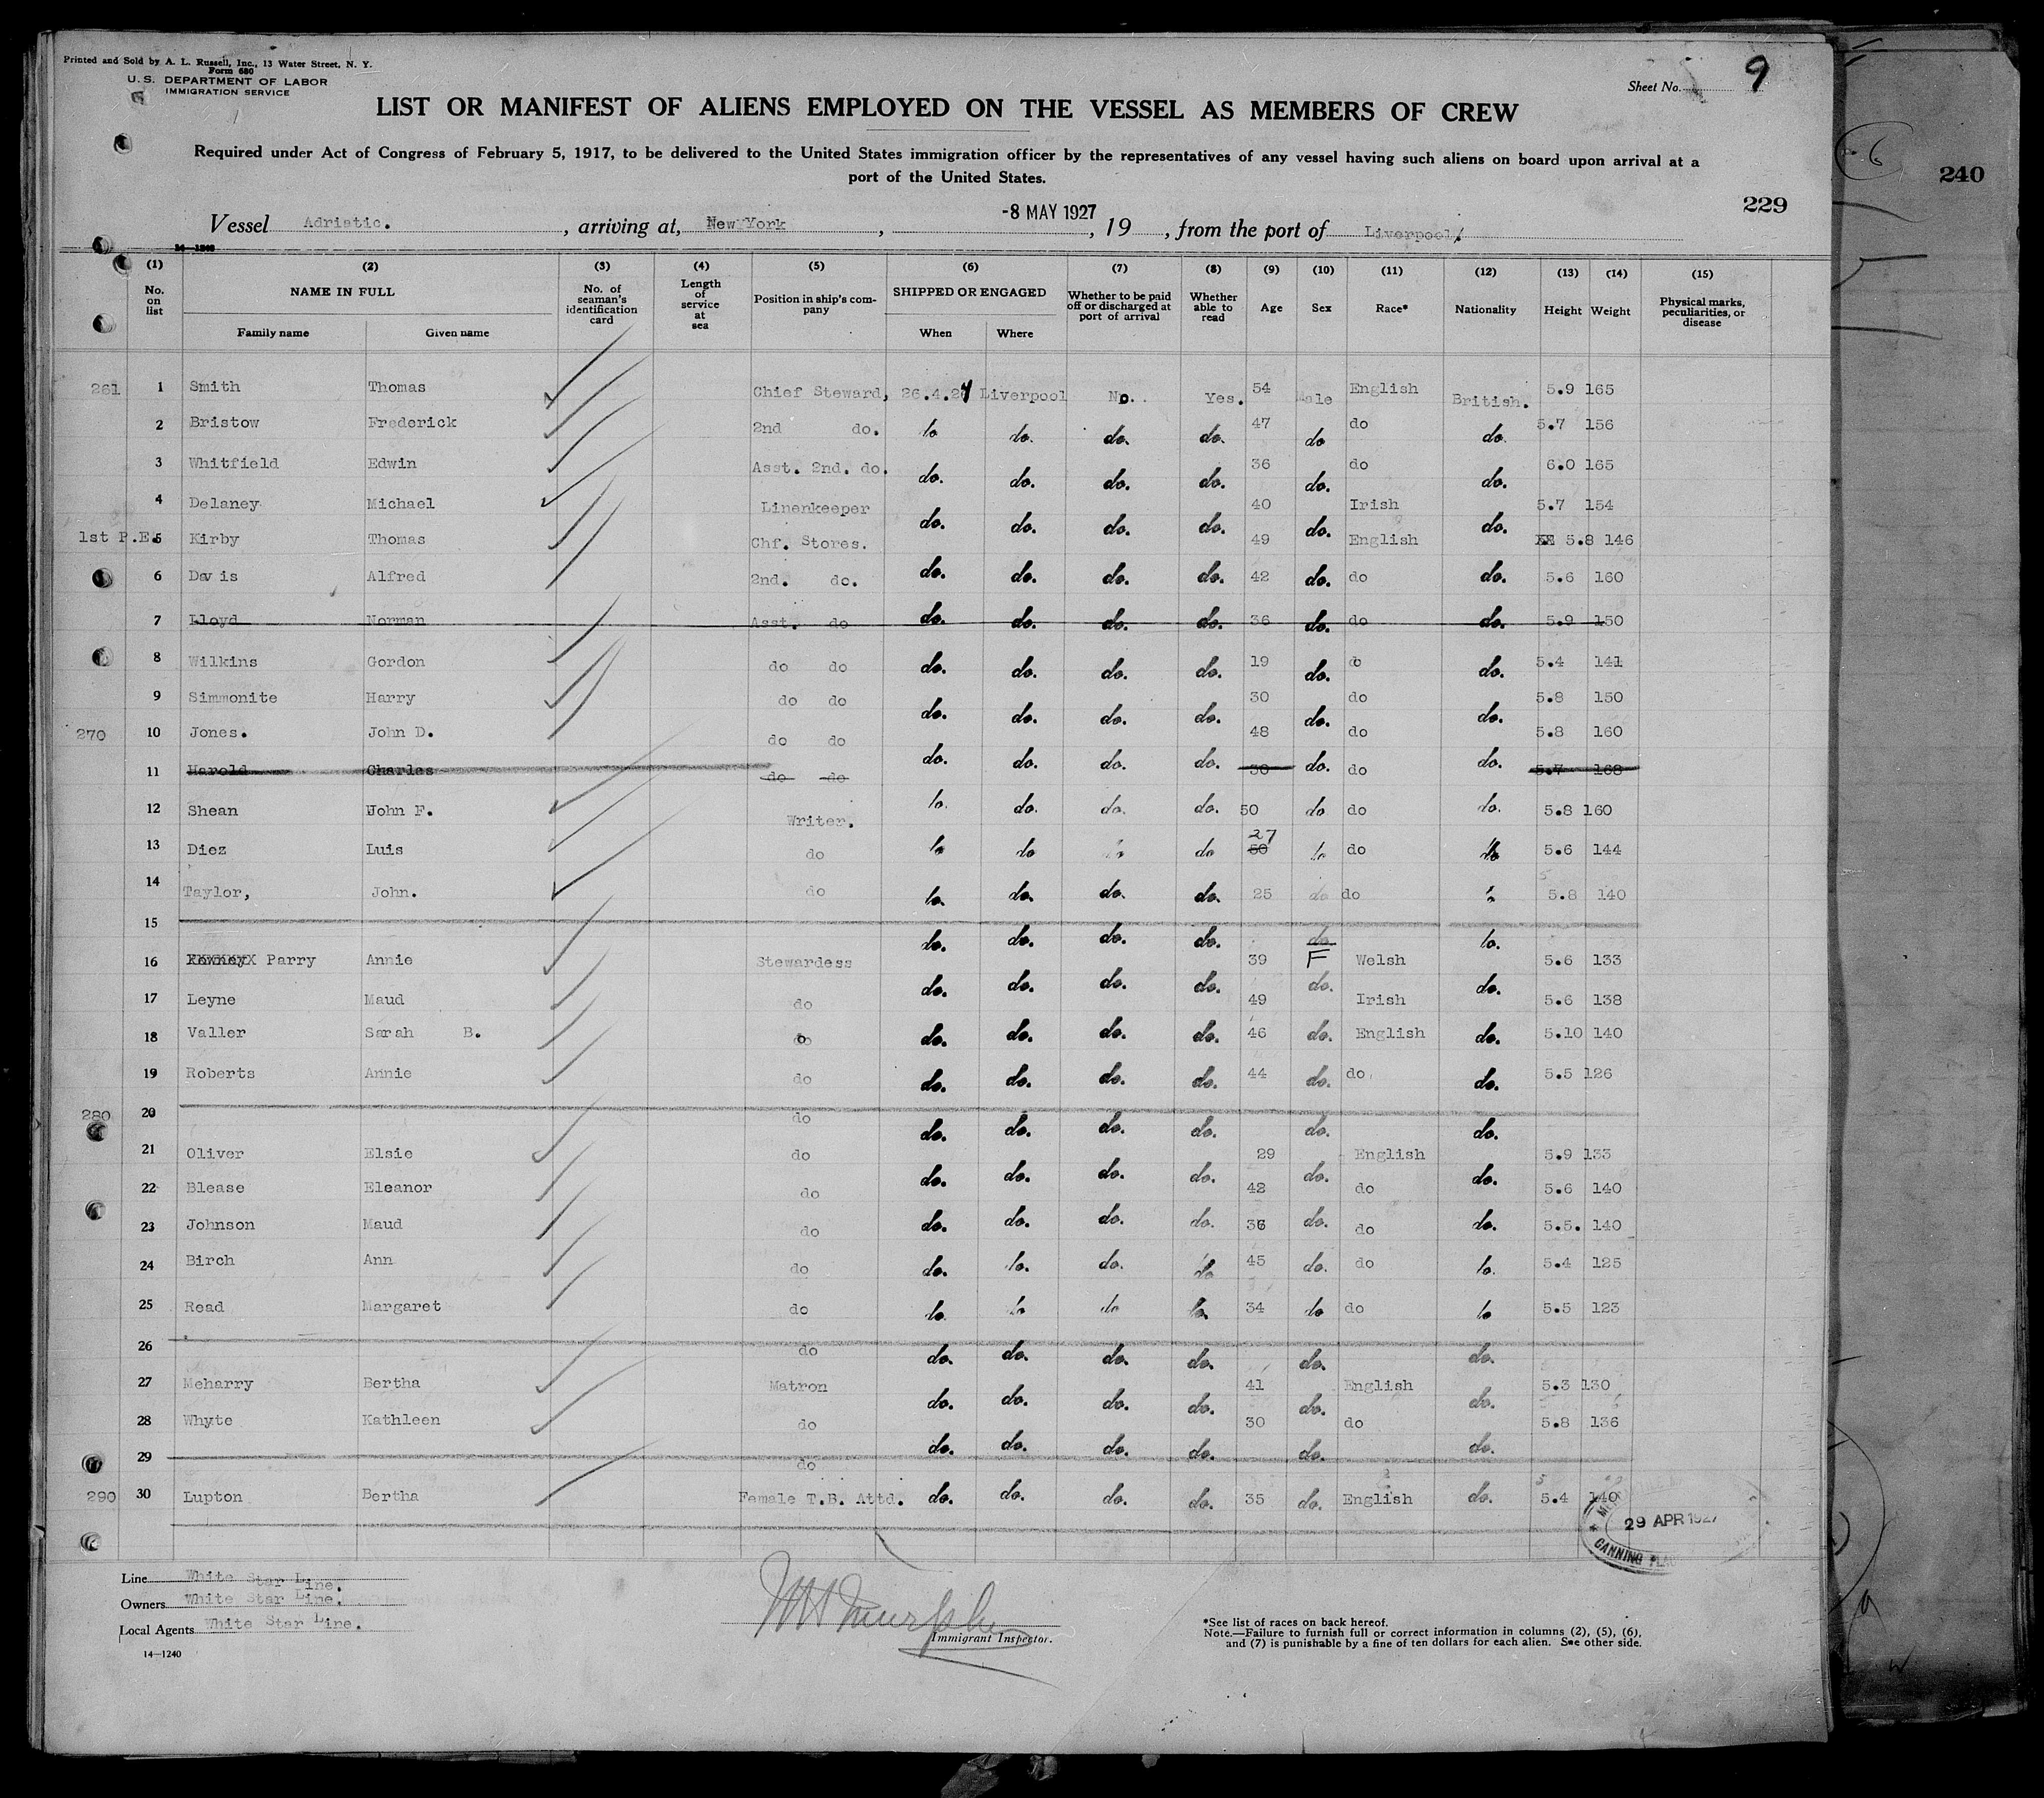 Printed and Sold by A. L. Russell, Inc., 13 Water Street, N. Y.
Form 680
U. S. DEPARTMENT OF LABOR
IMMIGRATION SERVICE
Sheet No. 9
LIST OR MANIFEST OF ALIENS EMPLOYED ON THE VESSEL AS MEMBERS OF CREW
Required under Act of Congress of February 5, 1917, to be delivered to the United States immigration officer by the representatives of any vessel having such aliens on board upon arrival at a
port of the United States.
240
229
Vessel Adriatic. , arriving at, New York , -8 MAY 1927 , 19 , from the port of Liverpool
14—1240
(1) (2) (3) (4) (5) (6) (7) (8) (9) (10) (11) (12) (13) (14) (15)
No. on list NAME IN FULL Family name Given name No. of seaman's identification card Length of service at sea Position in ship's company SHIPPED OR ENGAGED When Where Whether to be paid off or discharged at port of arrival Whether able to read Age Sex Race* Nationality Height Weight Physical marks, peculiarities, or disease
261 1 Smith Thomas Chief Steward, 26.4.27 Liverpool No. Yes. 54 Male English British. 5.9 165
2 Bristow Frederick 2nd do. do do. do. do. 47 do do do. 5.7 156
3 Whitfield Edwin Asst. 2nd. do. do. do. do. do. 36 do. do do. 6.0 165
4 Delaney Michael Linenkeeper do. do. do. do. 40 do. Irish do. 5.7 154
1st P.E. 5 Kirby Thomas Chf. Stores. do. do. do. do. 49 do. English do. 5.8 146
6 Davis Alfred 2nd. do. do. do. do. do. 42 do. do do. 5.6 160
7 Lloyd Norman Asst. do do. do. do. do. 36 do. do do. 5.9 150
8 Wilkins Gordon do do do. do. do. do. 19 do. do do. 5.4 141
9 Simmonite Harry do do do. do. do. do. 30 do. do do. 5.8 150
270 10 Jones. John D. do do do. do. do. do. 48 do. do do. 5.8 160
11 Harold Charles do do 30 do. do 5.7 168
12 Shean John F. Writer. do. do. do. do. 50 do do do. 5.8 160
13 Diez Luis do do do do do 50 27 do do do 5.6 144
14 Taylor, John. do do. do. do. do. 25 do do do 5.8 140
15 do. do. do. do. do. do.
16 Parry Annie Stewardess 39 F Welsh 5.6 133
17 Leyne Maud do do. do. do. do. 49 do. Irish do. 5.6 138
18 Valler Sarah B. do do. do. do. do. 46 do. English do. 5.10 140
19 Roberts Annie do do. do. do. do. 44 do. do do. 5.5 126
280 20 do do. do. do. do. do. do.
21 Oliver Elsie do do. do. do. do. 29 do. English do. 5.9 133
22 Blease Eleanor do 42 do 5.6 140
23 Johnson Maud do do. do. do. do. 36 do. do do. 5.5. 140
24 Birch Ann do do. do. do. do 45 do. do do. 5.4 125
25 Read Margaret do do do do do 34 do do do 5.5 123
26 do do. do. do. do. do. do.
27 Meharry Bertha Matron do. do. do. do. 41 do. English do. 5.3 130
28 Whyte Kathleen do 30 do 5.8 136
29 do do. do. do. do. do. do.
290 30 Lupton Bertha Female T.B. Attd. do. do. do. do. 35 do. English do. 5.4 140
29 APR 1927
CANNING
Line White Star Line.
Owners White Star Line.
Local Agents White Star Line.
14—1240
Immigrant Inspector.
*See list of races on back hereof.
Note.—Failure to furnish full or correct information in columns (2), (5), (6),
and (7) is punishable by a fine of ten dollars for each alien. See other side.